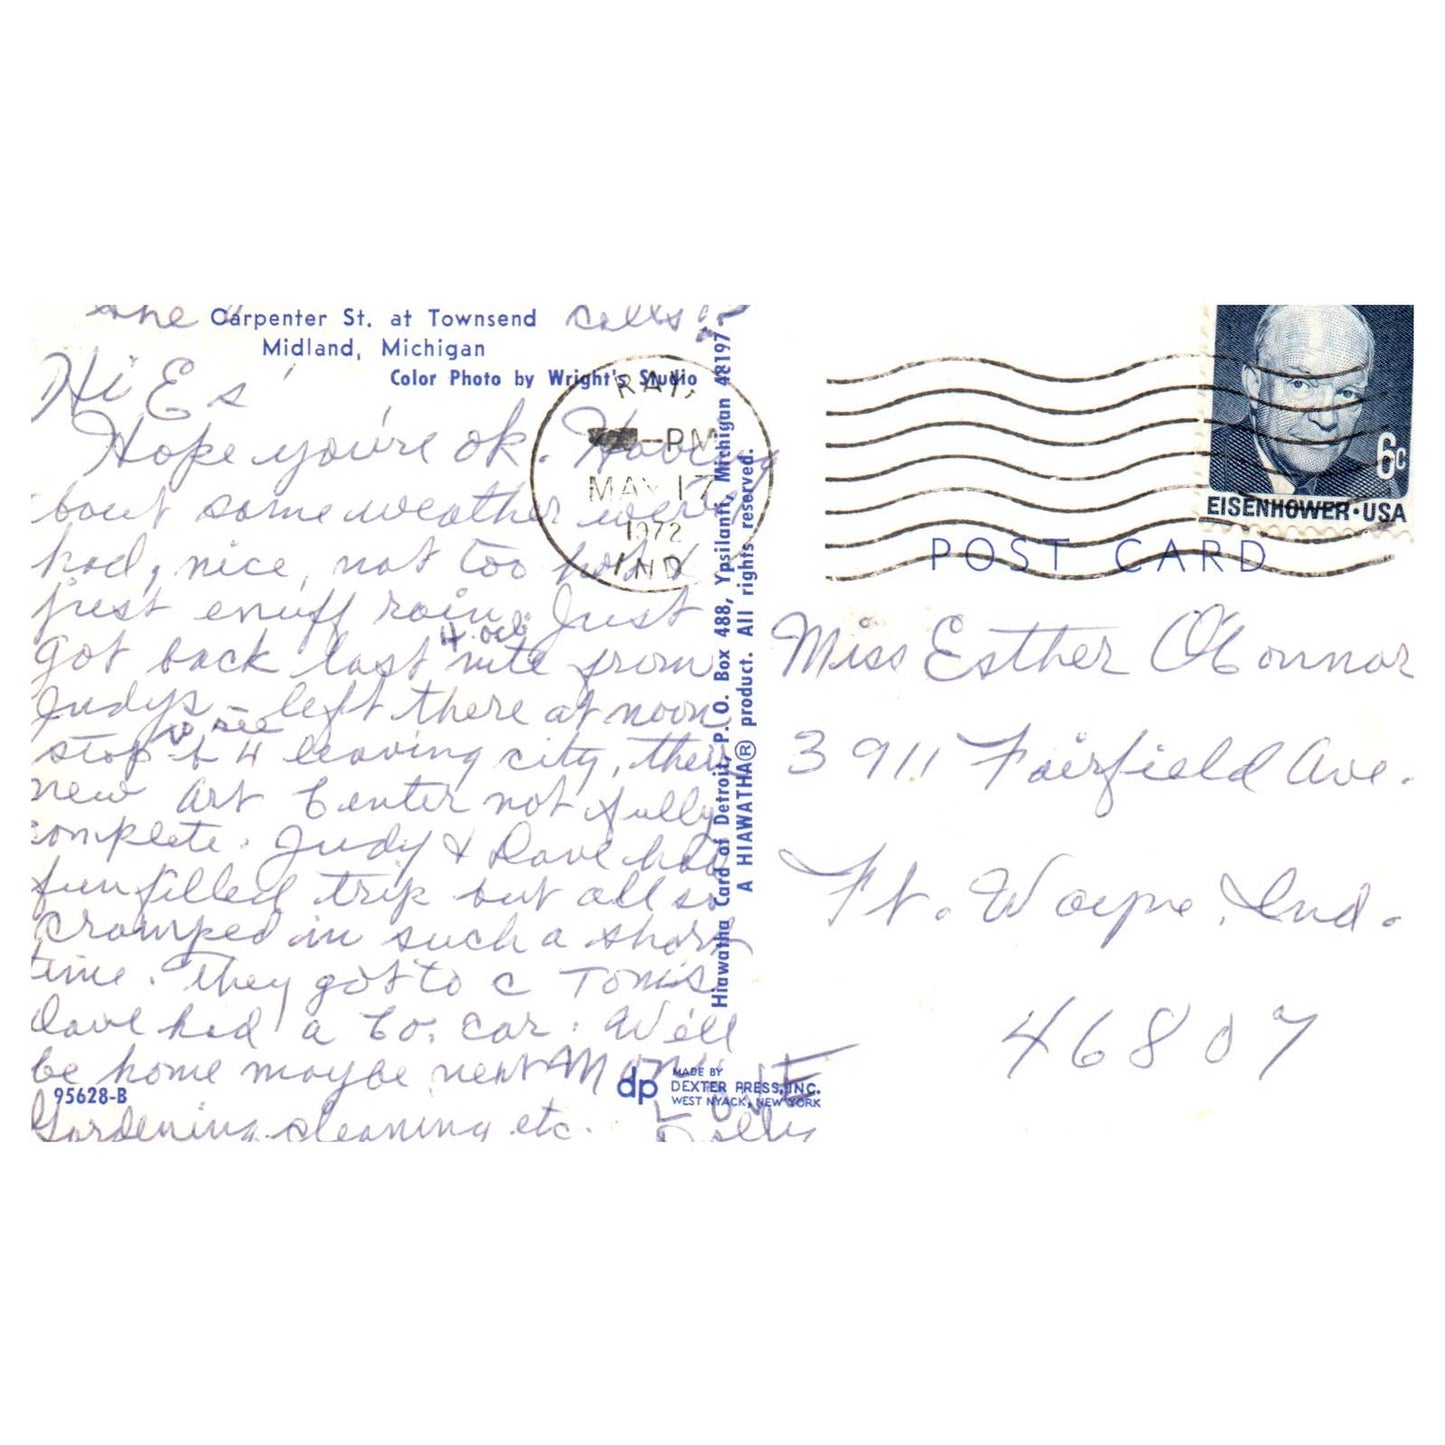 Carpenter St. at Townsend
Midland, Michigan
Color Photo by Wright's Studio
the calls
Hi Es'
Hope you're ok. Having
bout same weather we've
had, nice, not too hot &
just enuff rain. Just
4. ocl.
got back last nite from
Judy's left there at noon
to see
stop b 4 leaving city, their
new Art Center not fully
complete. Judy & Dave had
fun filled trip but all so
cramped in such a short
time. They got to c Tom's.
Dave had a Co. car. We'll
be home maybe next Mon.
Gardening, cleaning etc.
LOVE
95628-B
Hiawatha Card of Detroit, P. O. Box 488, Ypsilanti, Michigan 48197
A HIAWATHA® product. All rights reserved.
dp MADE BY
DEXTER PRESS, INC.
WEST NYACK, NEW YORK
RAY,
PM
MAY 17
1972
IND
6c
EISENHOWER·USA
POST CARD
Miss Esther O'Connor
3911 Fairfield Ave.
Ft. Wayne, Ind.
46807